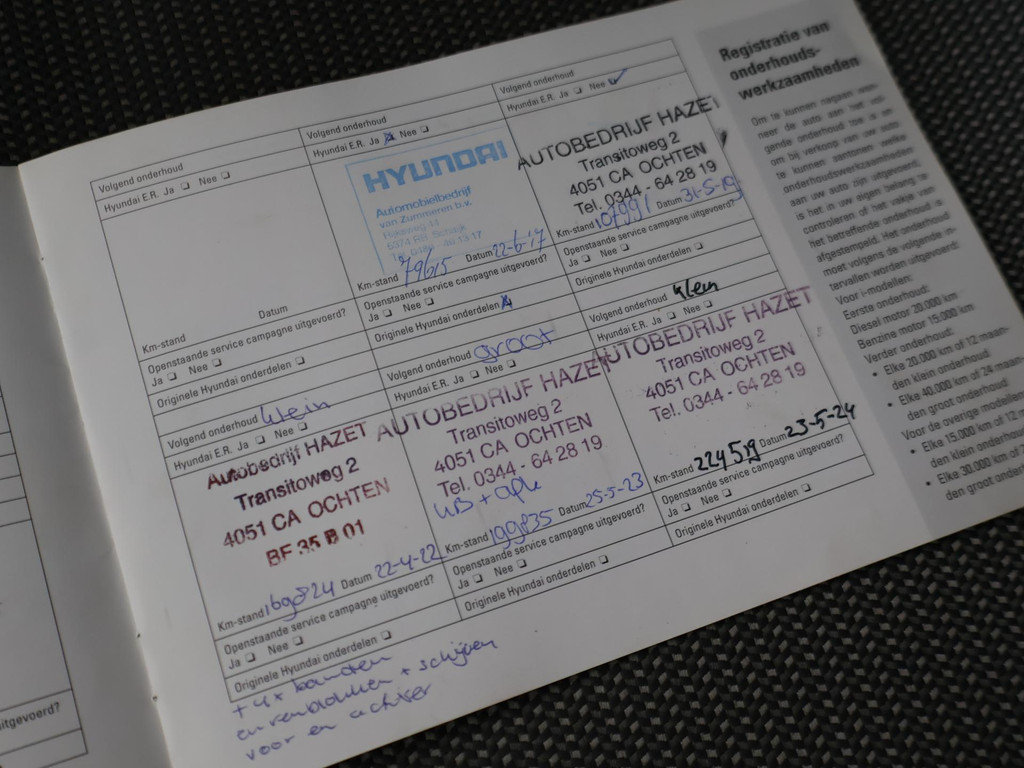 Volgend onderhoud
Hyundai E.R. Ja ❏ Nee ❏
Km-stand Datum
Openstaande service campagne uitgevoerd?
Ja ❏ Nee ❏
Originele Hyundai onderdelen ❏
Volgend onderhoud
Hyundai E.R. Ja ❏ Nee ❏
HYUNDAI
Automobielbedrijf
van Zummeren b.v.
46 13 17
Km-stand 79615 Datum 22-6-17
Openstaande service campagne uitgevoerd?
Ja ❏ Nee ❏
Originele Hyundai onderdelen
Volgend onderhoud
Hyundai E.R. Ja ❏ Nee ❏
AUTOBEDRIJF HAZET
Transitoweg 2
4051 CA OCHTEN
Tel. 0344 - 64 28 19
Km-stand 107991 Datum 31-5-19
Openstaande service campagne uitgevoerd?
Ja ❏ Nee ❏
Originele Hyundai onderdelen ❏
Volgend onderhoud klein
Hyundai E.R. Ja ❏ Nee ❏
Autobedrijf HAZET
Transitoweg 2
4051 CA OCHTEN
BF 35 B 01
Km-stand Datum 22-4-22
Openstaande service campagne uitgevoerd?
Ja ❏ Nee ❏
Originele Hyundai onderdelen ❏
+ 4x banden
en remblokken + schijven
voor en achter
Volgend onderhoud groot
Hyundai E.R. Ja ❏ Nee ❏
AUTOBEDRIJF HAZET
Transitoweg 2
4051 CA OCHTEN
Tel. 0344 - 64 28 19
Km-stand 199835 Datum 25-5-23
Openstaande service campagne uitgevoerd?
Ja ❏ Nee ❏
Originele Hyundai onderdelen ❏
Volgend onderhoud klein
Hyundai E.R. Ja ❏ Nee ❏
AUTOBEDRIJF HAZET
Transitoweg 2
4051 CA OCHTEN
Tel. 0344 - 64 28 19
Km-stand Datum 23-5-24
Openstaande service campagne uitgevoerd?
Ja ❏ Nee ❏
Originele Hyundai onderdelen ❏
Registratie van
onderhouds-
werkzaamheden
Om te kunnen nagaan wan-
neer de auto aan het vol-
gende onderhoud toe is en
om bij verkoop van uw auto
te kunnen aantonen welke
onderhoudswerkzaamheden
aan uw auto zijn uitgevoerd,
is het in uw eigen belang te
controleren of het vakje van
het betreffende onderhoud is
afgestempeld. Het onderhoud
moet volgens de volgende in-
tervallen worden uitgevoerd:
Voor i-modellen:
Eerste onderhoud:
Diesel motor 20.000 km
Benzine motor 15.000 km
Verder onderhoud:
• Elke 20.000 km of 12 maan-
den klein onderhoud
• Elke 40.000 km of 24 maan-
den groot onderhoud
Voor de overige modellen
• Elke 15.000 km of 12
den klein onderhoud
• Elke 30.000 km of
den groot onder
itgevoerd?